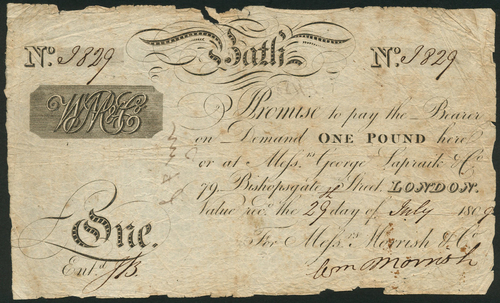 Bath
No. 1829 No. 1829
I Promise to pay the Bearer
on Demand ONE POUND here
or at Mess.rs George Lapraik & Co
79 Bishopsgate St. Street, LONDON.
Value rec.d the 29 day of July 180
£One. For Mess.rs Morrish & Co
Ent.d JB. Wm Morrish